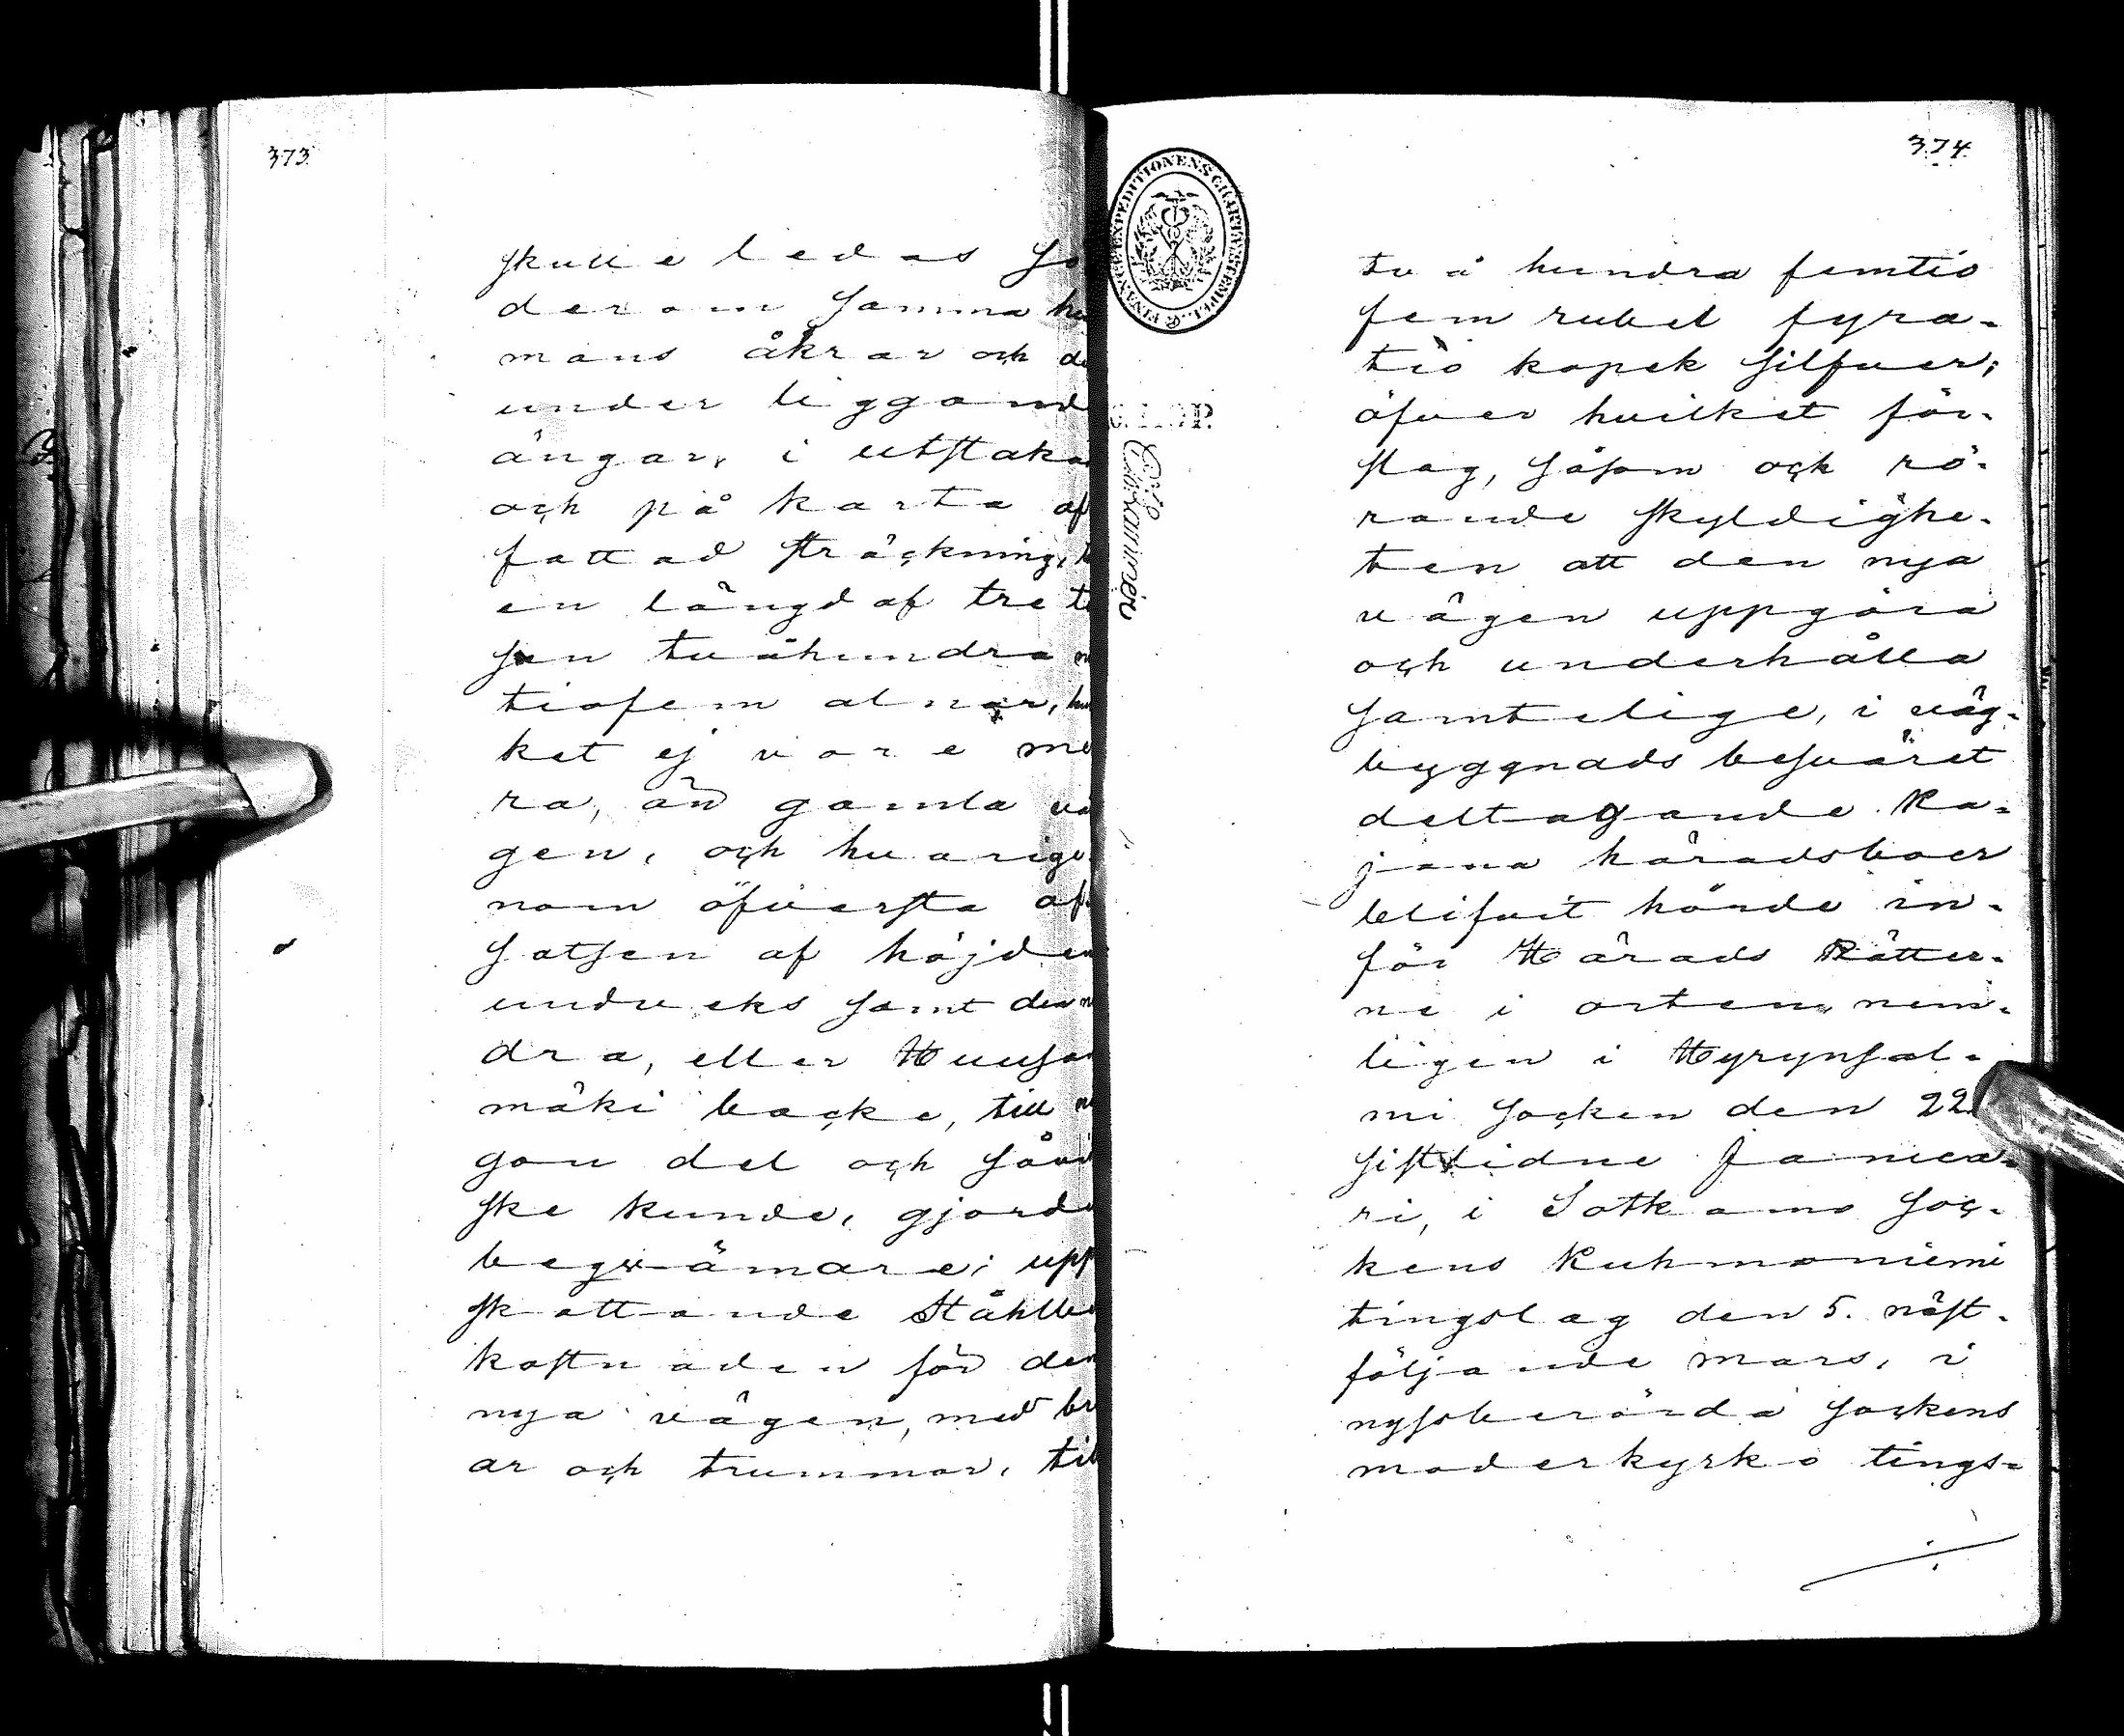 373
skulle ledas sö
derom samma he
mans åkrar och de
under liggand
ängar, i utstaka
och på karta af
fattad sträckning, t
en längd af tre tu
sen tuåhundra n
tiofem alnar, hu
ket ej vore me
ra, än gamla vä
gen, och huarige
nom öfversta af
satsen af höjden
undveks samt den
dra, eller Huuso
mäki backe, till n
gon del och såvi
ske kunde, gjorde
beqvämare; upp
skattande Stähll
kostnaden för den
nya vägen, med br
ar och trummor, til
374
FINANCE EXPEDITIONENS CHARTÆ STEMPEL.
två hundra femtio
fem rubel fyra-
tio kopek silfver;
öfver hvilket för-
slag, såsom och rö-
rande skyldighe-
ten att den nya
vägen uppgöra
och underhålla
samtelige, i väg-
byggnads besväret
deltagande Ka-
jana häradsboer
blifvit hörde in-
för Härads Rätter-
ne i orten, nem-
ligen i Hyrynsal-
mi socken den 22
sistlidne Janua-
ri, i Sotkamo soc-
kens Kuhmoniemi
tingslag den 5. näst-
följande mars, i
nyssberörda sockens
moderkyrko tings-